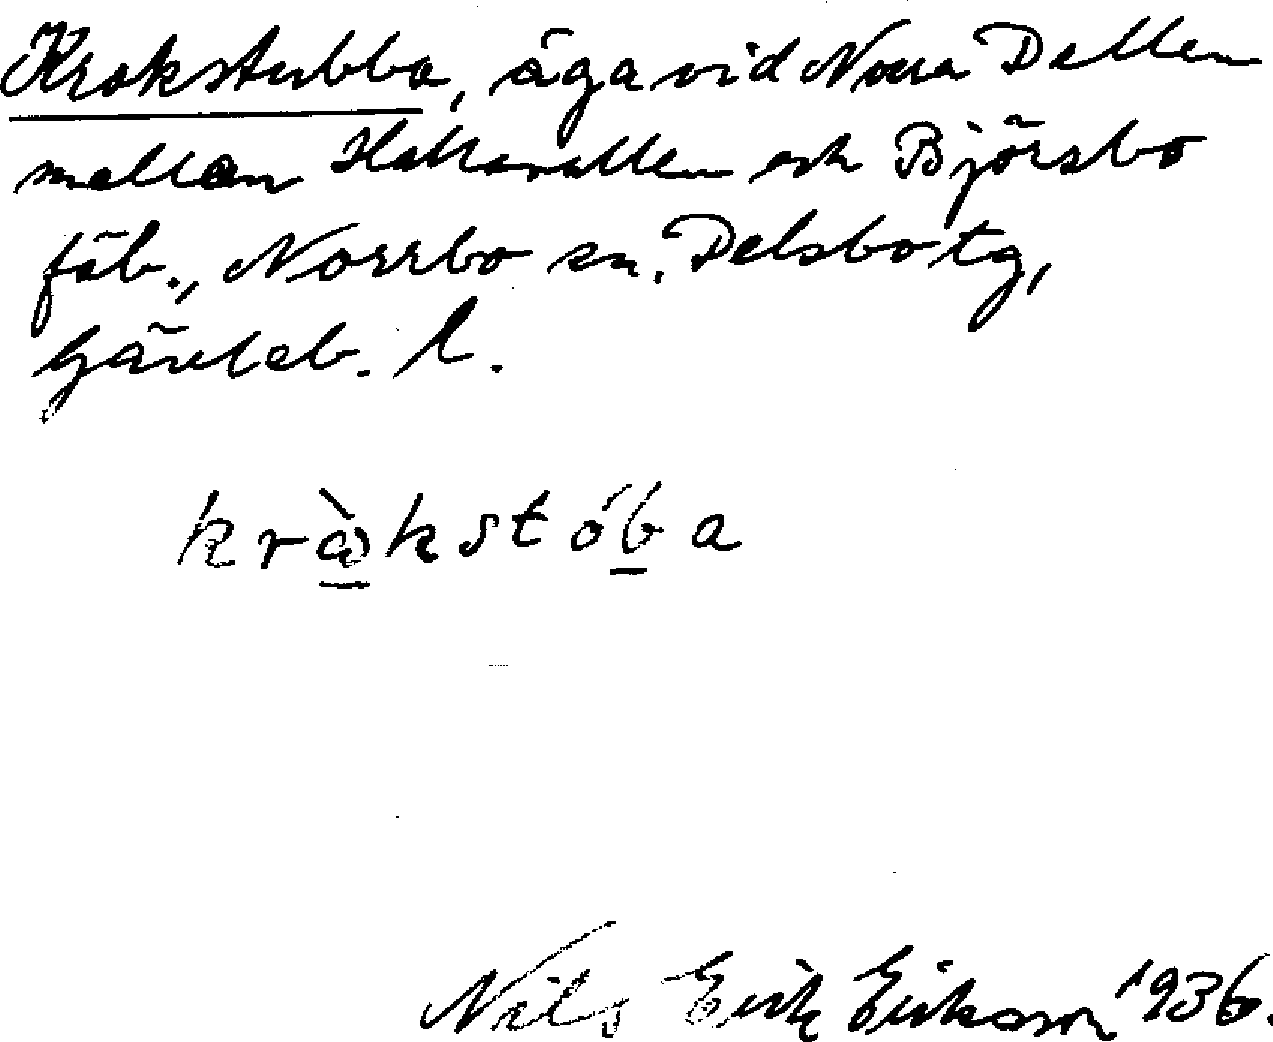 Krokstubba, äga vid Norra Dellen
mellan Hallavallen och Björsbo
fäb., Norrbo sn. Delsbo tg,
Gävleb. l.
kràkstóba
Nils Erik Eriksson 1936.